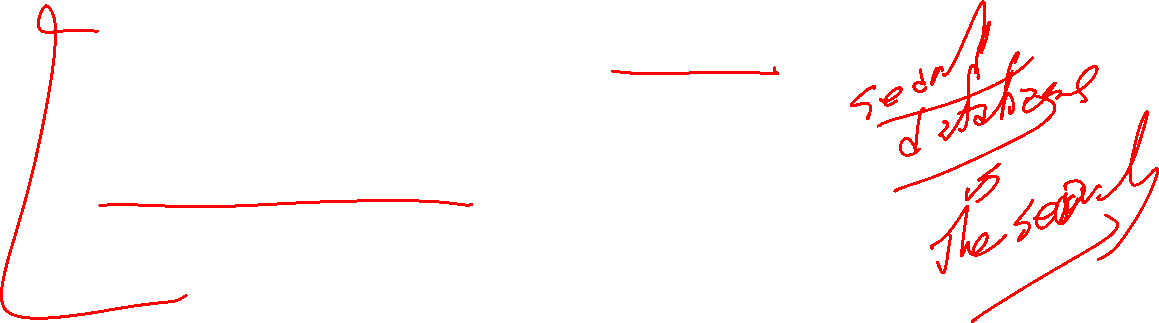 search
databases
is
The search